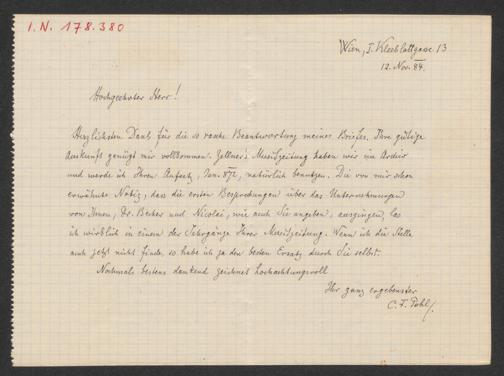 I.N. 178.380
Wien, I. Kleeblattgasse 13
12. Nov. 84.
Hochgeehrter Herr!
Herzlichsten Dank für die so rasche Beantwortung meines Briefes. Ihre gütige
Auskunft genügt mir vollkommen. Zellner's Musikzeitung haben wir im Archiv
und werde ich Ihren Aufsatz, natürlich benutzen. Die von mir schon
erwähnte Notiz, dass die ersten Besprechungen über das Unternehmen
von Ihnen, Dr. Becher und Nicolai, wie auch Sie angeben, ausgingen, las
ich wirklich in einem der Jahrgänge Ihrer Musikzeitung. Wenn ich die Stelle
auch jetzt nicht finde, so habe ich ja den besten Ersatz durch Sie selbst.
Nochmals bestens dankend zeichnet hochachtungsvoll
Ihr ganz ergebenster
C. F. Pohl